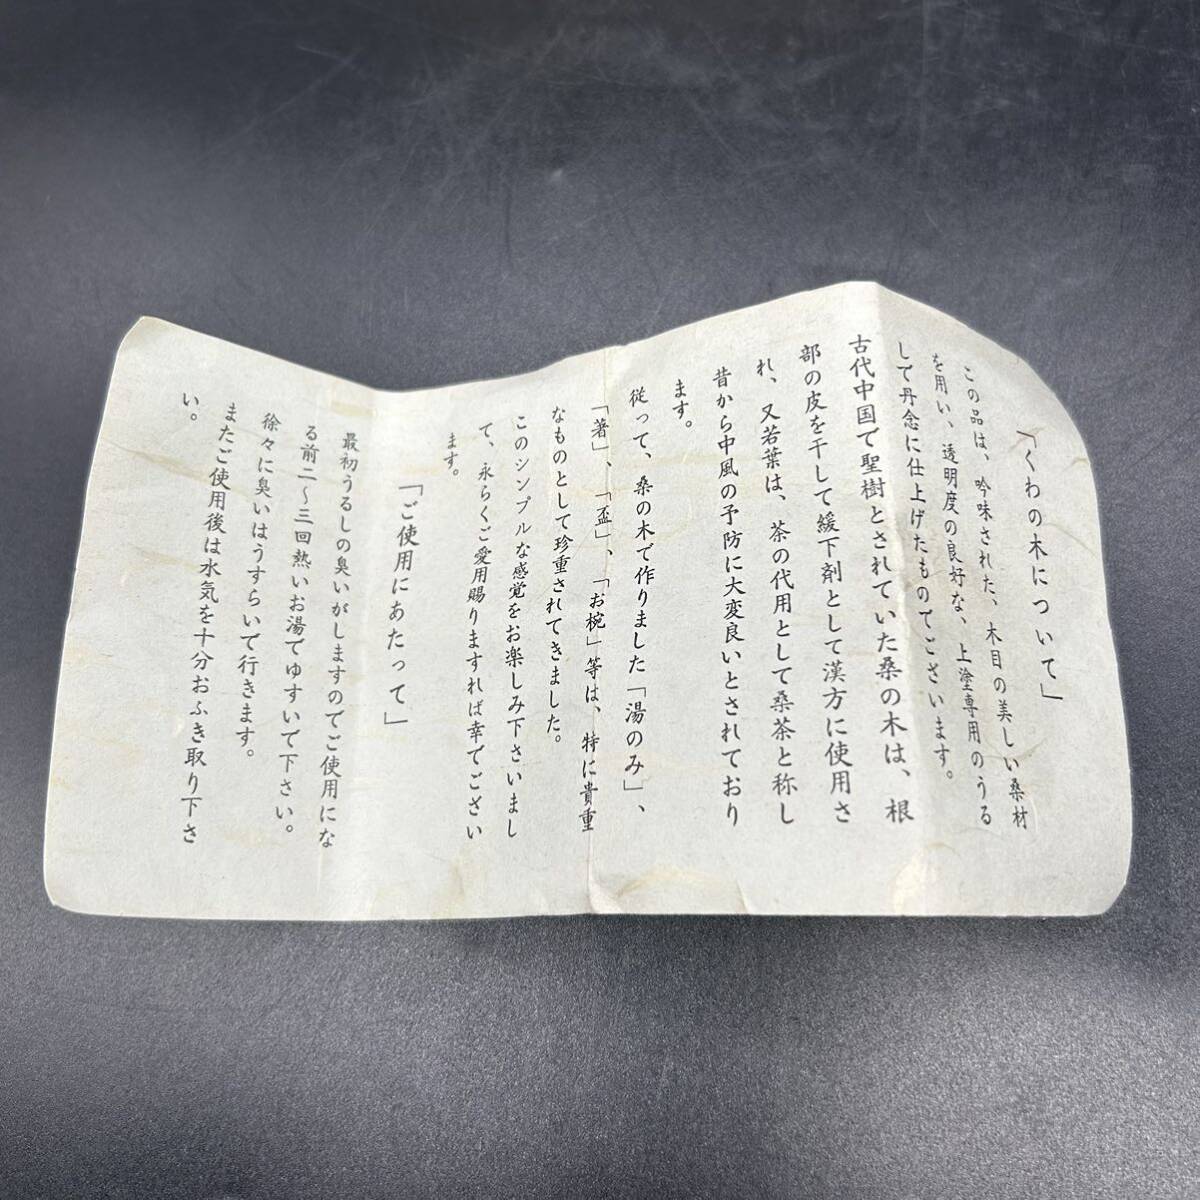 「くわの木について」
この品は、吟味された、木目の美しい桑材
を用い、透明度の良好な、上塗専用のうる
して丹念に仕上げたものでございます。
古代中国で聖樹とされていた桑の木は、根
部の皮を干して緩下剤として漢方に使用さ
れ、又若葉は、茶の代用として桑茶と称し
昔から中風の予防に大変良いとされており
ます。
従って、桑の木で作りました「湯のみ」、
「著」、「盃」、「お椀」等は、特に貴重
なものとして珍重されてきました。
このシンプルな感覚をお楽しみ下さいまし
て、永らくご愛用賜りますれば幸でござい
ます。
「ご使用にあたって」
最初うるしの臭いがしますのでご使用にな
る前二〜三回熱いお湯でゆすいで下さい。
徐々に臭いはうすらいで行きます。
またご使用後は水気を十分おふき取り下さ
い。